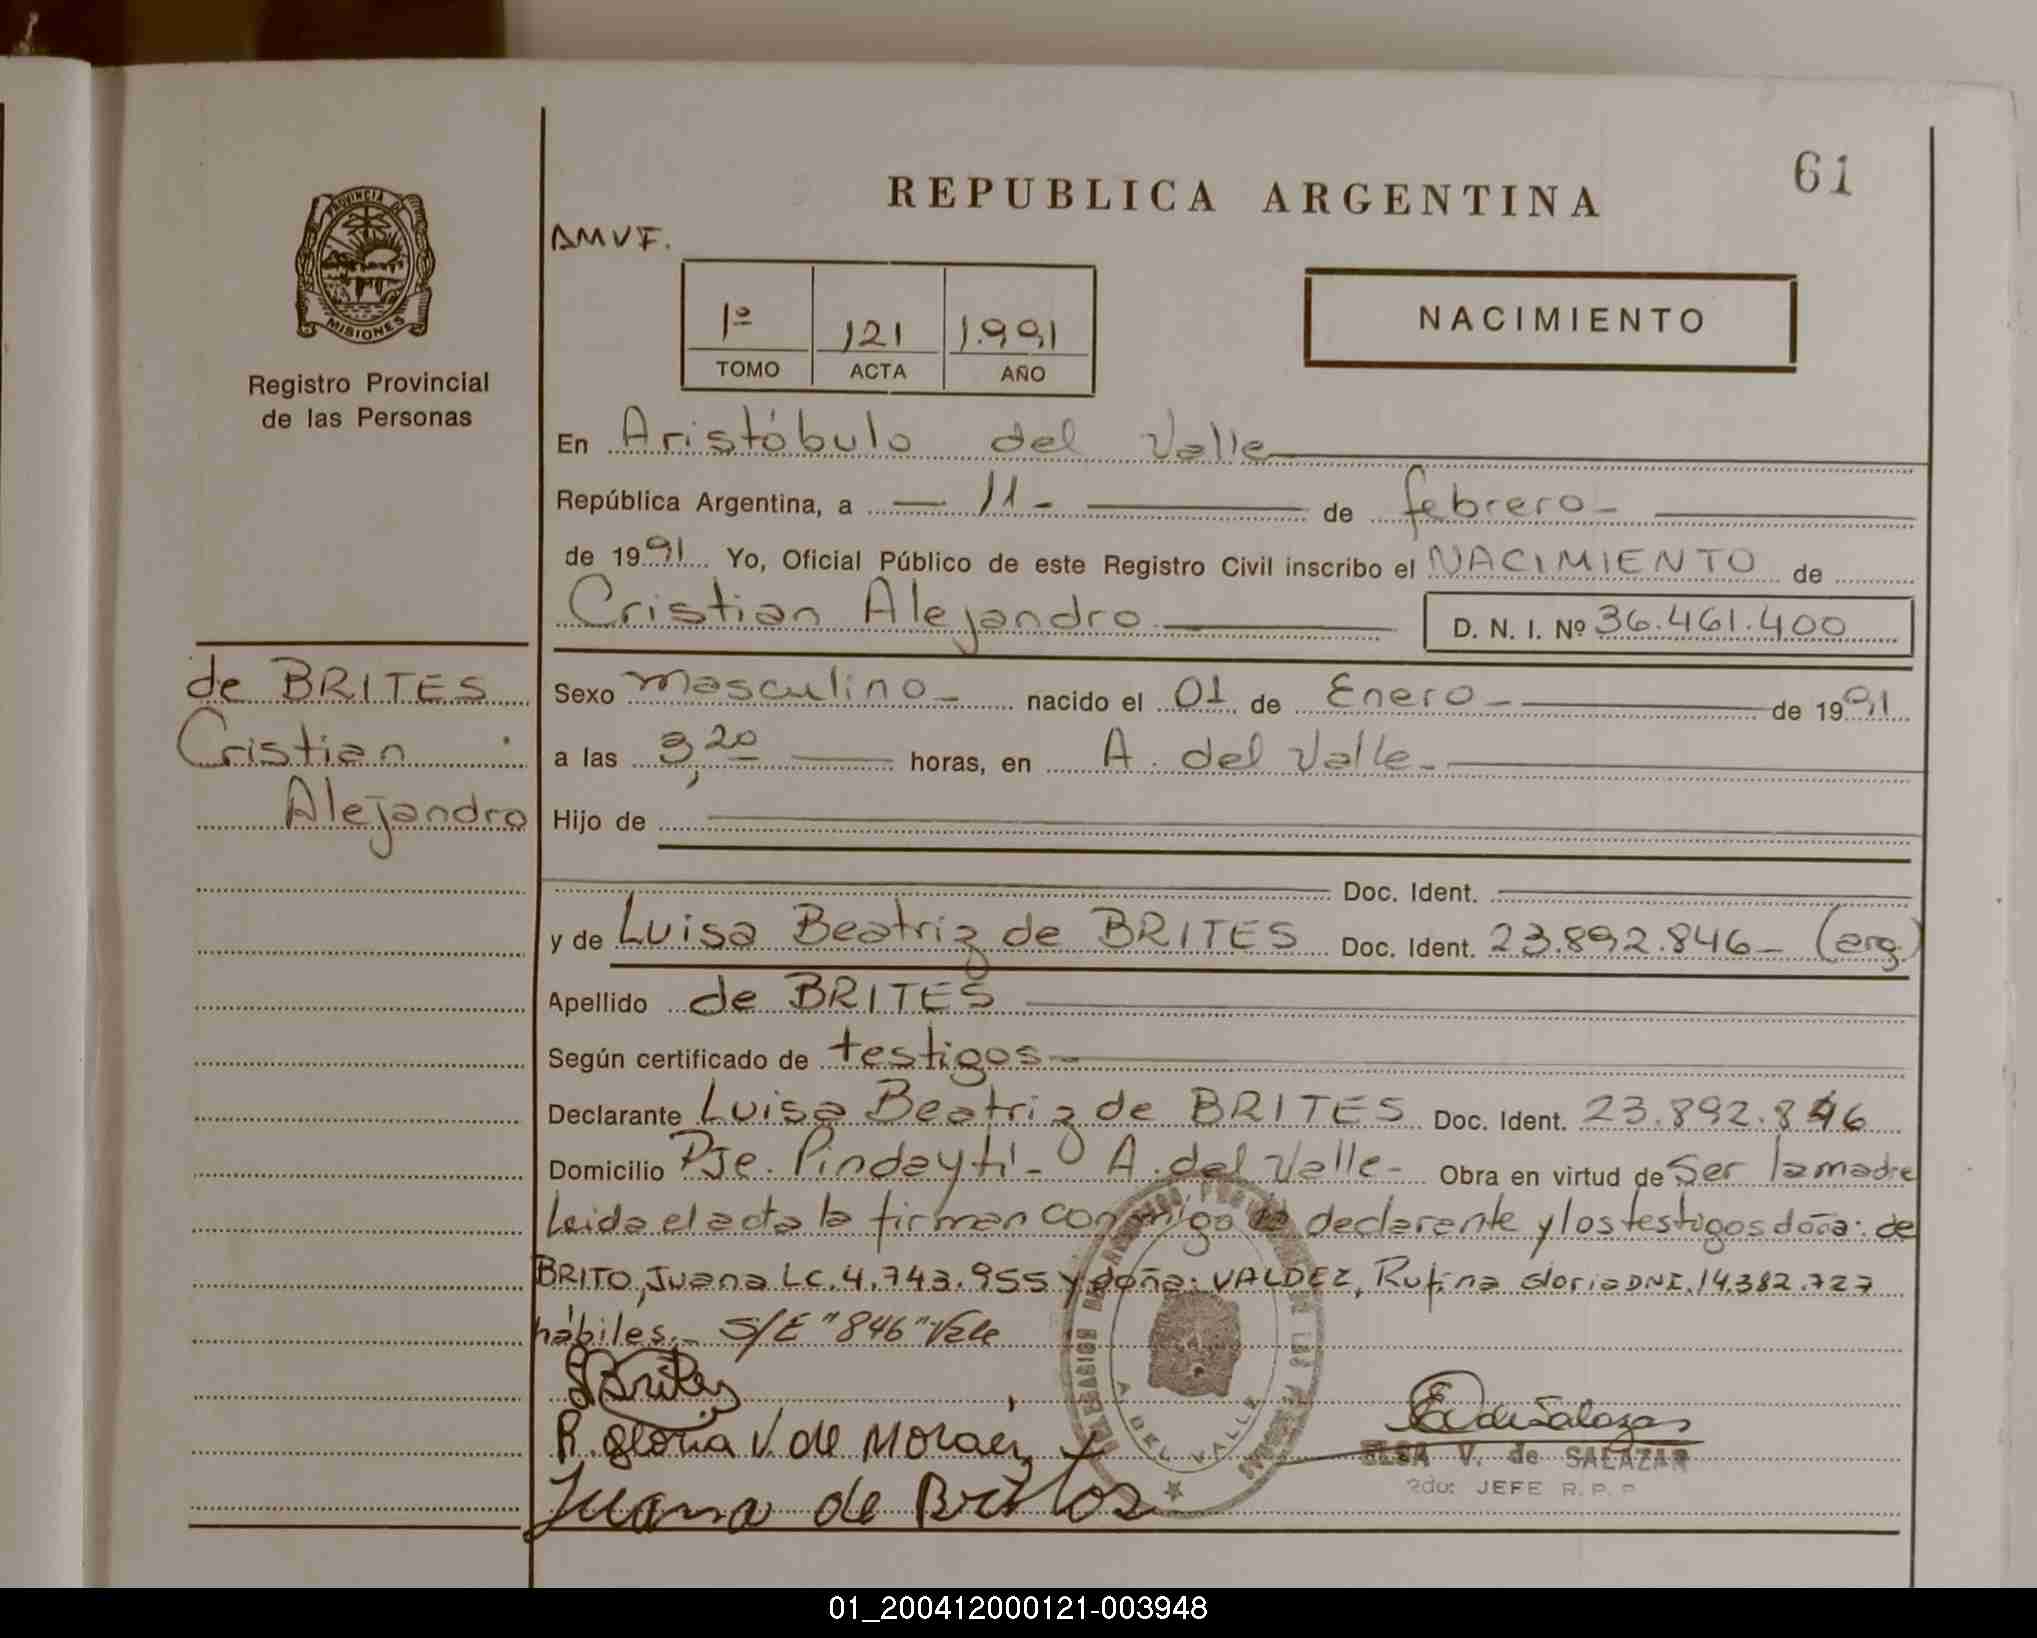 61
REPUBLICA ARGENTINA
PROVINCIA DE
MISIONES
Registro Provincial
de las Personas
AMVF.
1º 121 1.991
TOMO ACTA AÑO
NACIMIENTO
En Aristóbulo del Valle
República Argentina, a 11 - de febrero -
de 1991 Yo, Oficial Público de este Registro Civil inscribo el NACIMIENTO de
Cristian Alejandro D. N. I. Nº 36.461.400
de BRITES
Cristian
Alejandro
Sexo masculino - nacido el 01 de Enero - de 1991
a las 3,20 horas, en A. del Valle -
Hijo de
Doc. Ident.
y de Luisa Beatriz de BRITES Doc. Ident. 23.892.846 - (arg.)
Apellido de BRITES
Según certificado de testigos -
Declarante Luisa Beatriz de BRITES Doc. Ident. 23.892.846
Domicilio Pje. Pindaytí - A. del Valle - Obra en virtud de ser la madre
Leida el acta la firman conmigo la declarante y los testigos doña: de
BRITO, Juana LC. 4.743.955 y doña: VALDEZ, Rufina Gloria DNI. 14.382.727
hábiles.- S/E "846" Vale
LBrites
R. Gloria V. de Moraez
Juana de Britos
A. DEL VALLE
EdeSalazar
ELSA V. de SALAZAR
2do: JEFE R. P. P
01_200412000121-003948